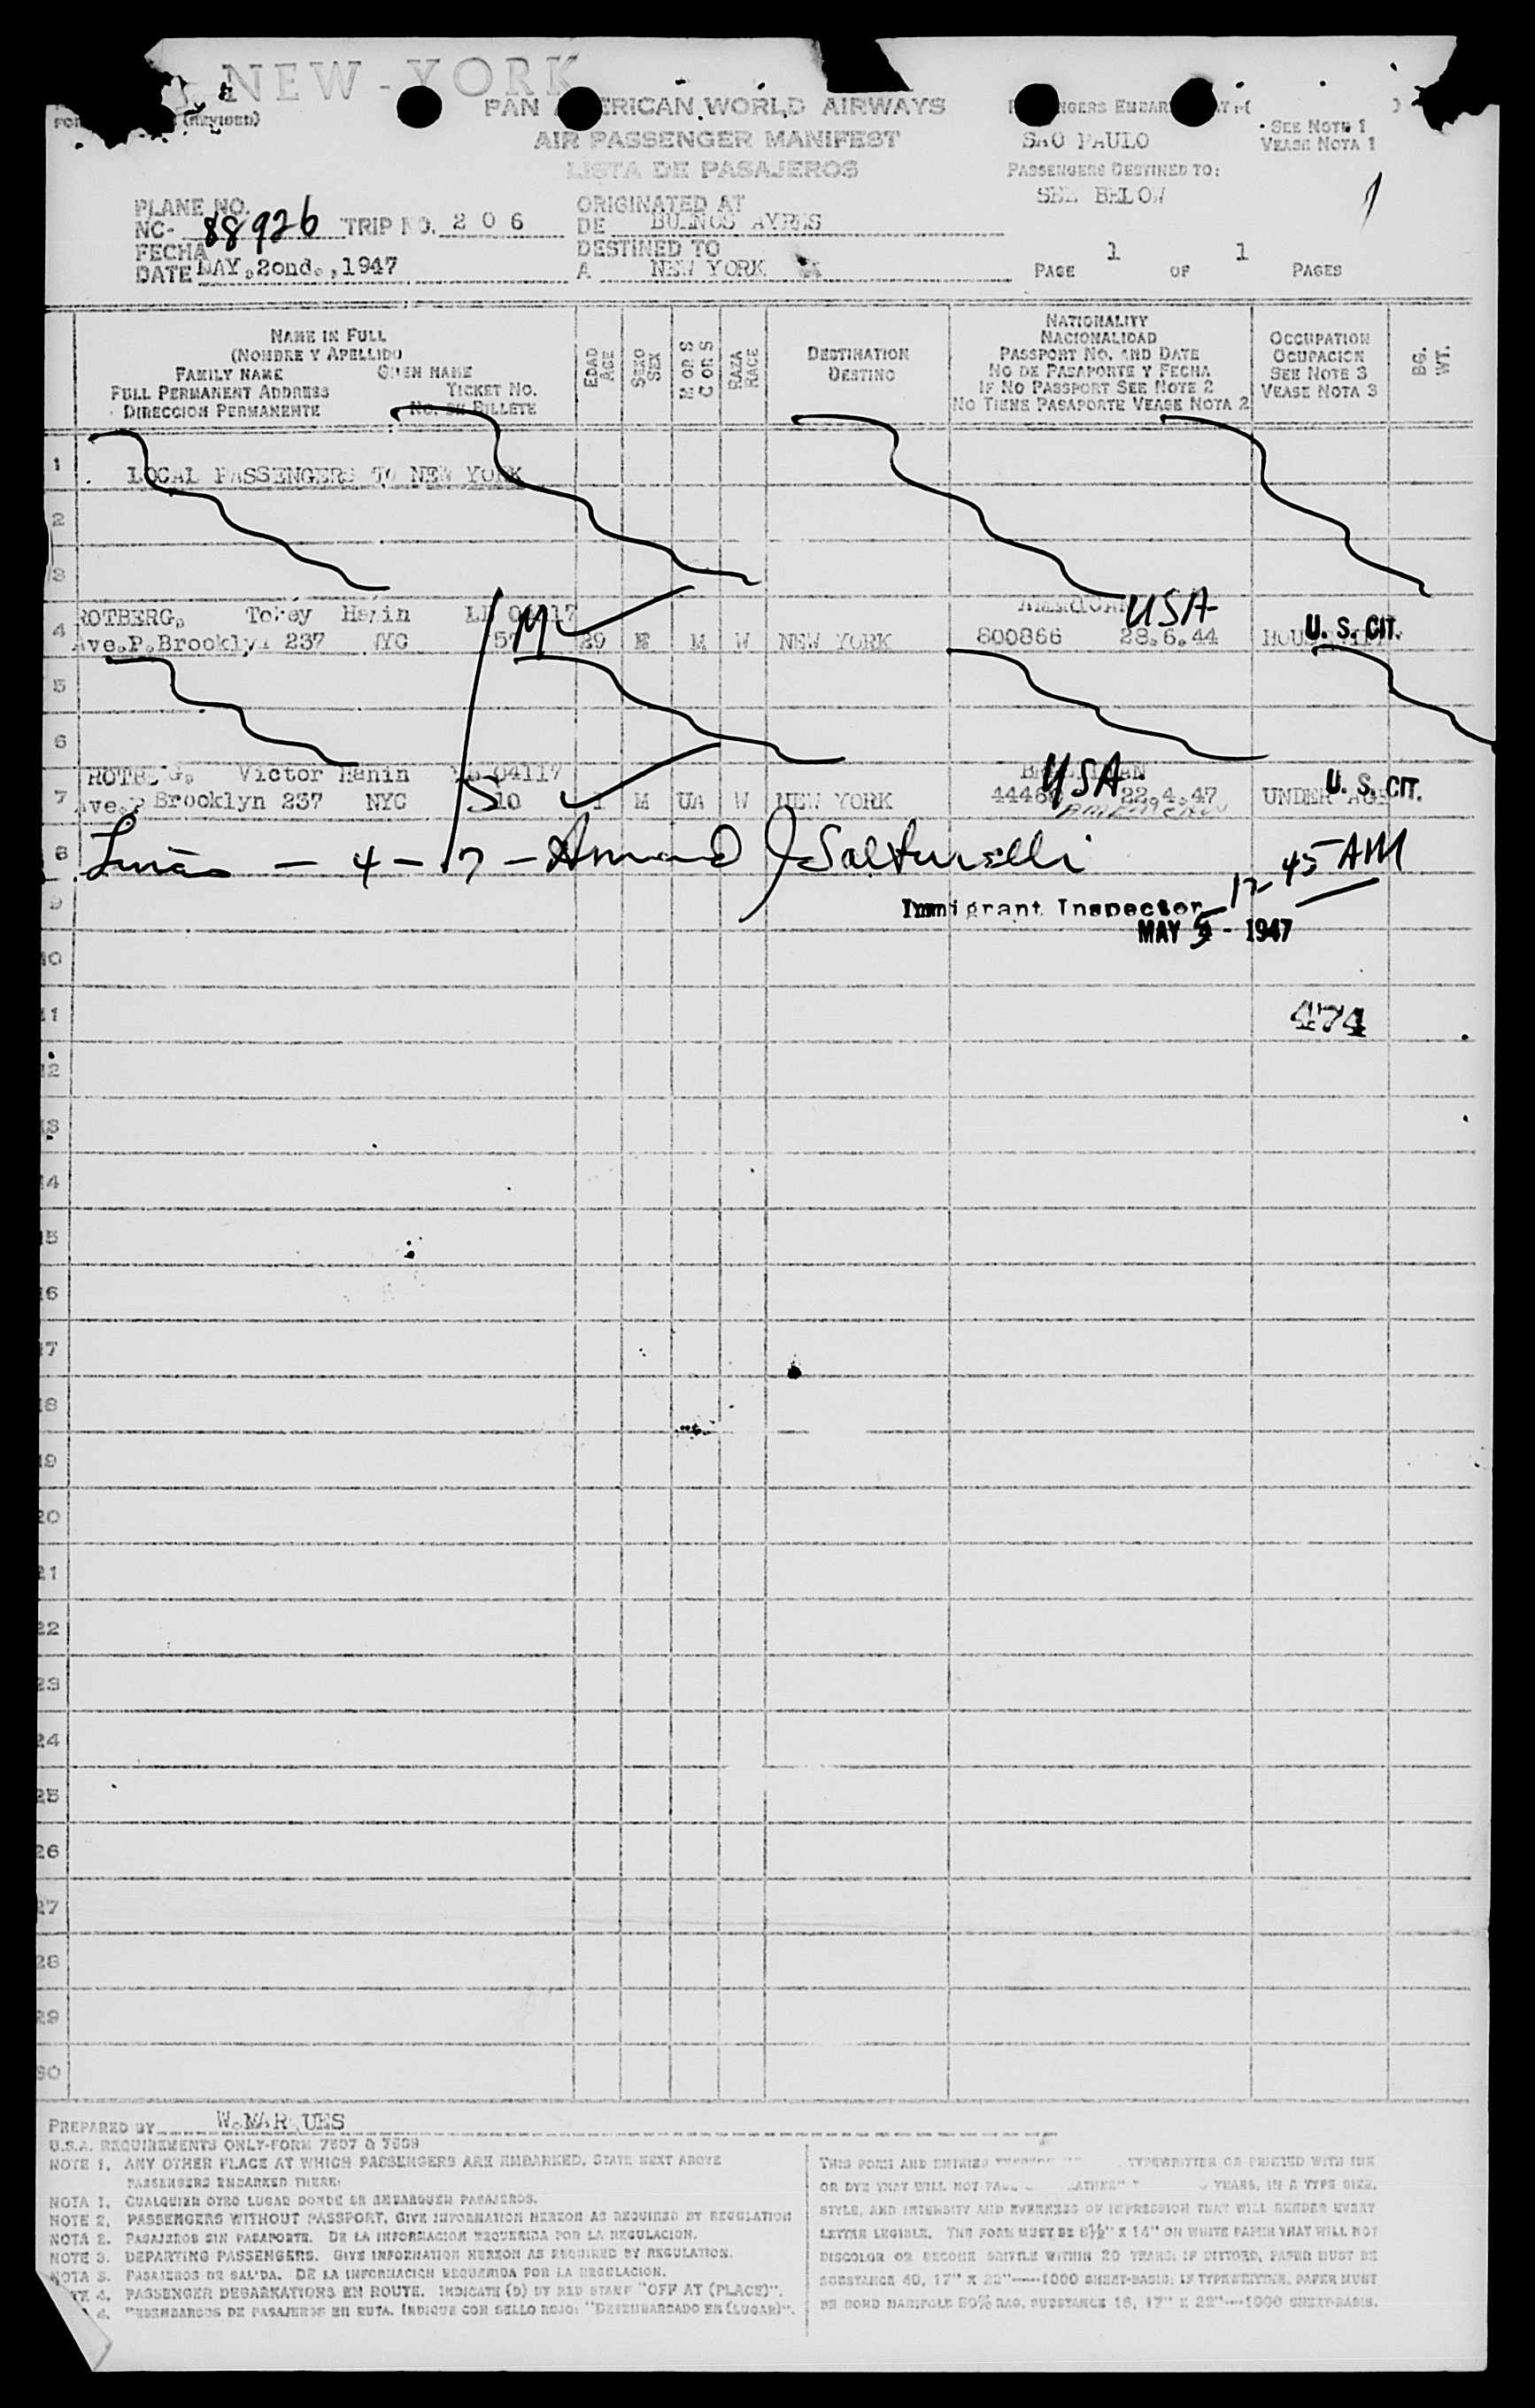 NEW-YORK
(REVISED)
PAN AMERICAN WORLD AIRWAYS
AIR PASSENGER MANIFEST
LISTA DE PASAJEROS
SAO PAULO
SEE NOTE 1
VEASE NOTA 1
PASSENGERS DESTINED TO:
SEE BELOW
PLANE NO.
NC- 88926 TRIP NO. 206
FECHA
DATE MAY, 2ond., 1947
ORIGINATED AT
DE BUENOS AYRES
DESTINED TO
A NEW YORK
PAGE 1 OF 1 PAGES
NAME IN FULL
(NOMBRE Y APELLIDO
FAMILY NAME GIVEN NAME
FULL PERMANENT ADDRESS TICKET NO.
DIRECCION PERMANENTE NO. DE BILLETE
EDAD
AGE
SEXO
SEX
M OR S
C OR S
RAZA
RACE
DESTINATION
DESTINO
NATIONALITY
NACIONALIDAD
PASSPORT NO. AND DATE
NO DE PASAPORTE Y FECHA
IF NO PASSPORT SEE NOTE 2
NO TIENE PASAPORTE VEASE NOTA 2
OCCUPATION
OCUPACION
SEE NOTE 3
VEASE NOTA 3
BG.
WT.
1 LOCAL PASSENGERS TO NEW YORK
2
3
ROTBERG, Hanin 04117 M USA
4 Ave.P.Brooklyn 237 NYC 29 M W NEW YORK 800866 28.6.44 U. S. CIT.
5
6
Victor Hanin 04117 USA
7 Ave.P Brooklyn 237 NYC 10 M UA W NEW YORK 22.4.47 UNDER AGE U. S. CIT.
AMERICAN
8 Lines - 4 - 7 - Armand J Salturelli
12 45 AM
Immigrant Inspector
MAY 5 - 1947
9
10
11 474
12
13
14
15
16
17
18
19
20
21
22
23
24
25
26
27
28
29
30
PREPARED BY W.MARQUES
U.S.A. REQUIREMENTS ONLY-FORM 7507 & 7509
NOTE 1. ANY OTHER PLACE AT WHICH PASSENGERS ARE EMBARKED, STATE NEXT ABOVE
PASSENGERS EMBARKED THERE:
NOTA 1. CUALQUIER OTRO LUGAR DONDE SE EMBARQUEN PASAJEROS.
NOTE 2. PASSENGERS WITHOUT PASSPORT, GIVE INFORMATION HEREON AS REQUIRED BY REGULATION
NOTA 2. PASAJEROS SIN PASAPORTE. DE LA INFORMACION REQUERIDA POR LA REGULACION.
NOTE 3. DEPARTING PASSENGERS. GIVE INFORMATION HEREON AS REQUIRED BY REGULATION.
NOTA 3. PASAJEROS DE SALIDA. DE LA INFORMACION REQUERIDA POR LA REGULACION.
NOTE 4. PASSENGER DEBARKATIONS EN ROUTE. INDICATE (D) BY RED STAMP "OFF AT (PLACE)".
4. DESEMBARCOS DE PASAJEROS EN RUTA. INDIQUE CON SELLO ROJO: "DESEMBARCADO EN (LUGAR)".
THIS FORM AND ENTRIES TYPEWRITTEN OR PRINTED WITH INK
OR DYE THAT WILL NOT YEARS, IN A TYPE SIZE,
STYLE, AND INTENSITY AND EVENNESS OF IMPRESSION THAT WILL RENDER EVERY
LETTER LEGIBLE. THE FORM MUST BE 8½" X 14" ON WHITE PAPER THAT WILL NOT
DISCOLOR OR BECOME BRITTLE WITHIN 20 YEARS; IF DITTOED, PAPER MUST BE
SUBSTANCE 40, 17" X 22"-----1000 SHEET-BASIS; IF TYPEWRITTEN, PAPER MUST
BE BOND MANIFOLD 50% RAG, SUBSTANCE 16, 17" X 22"----1000 SHEET-BASIS.